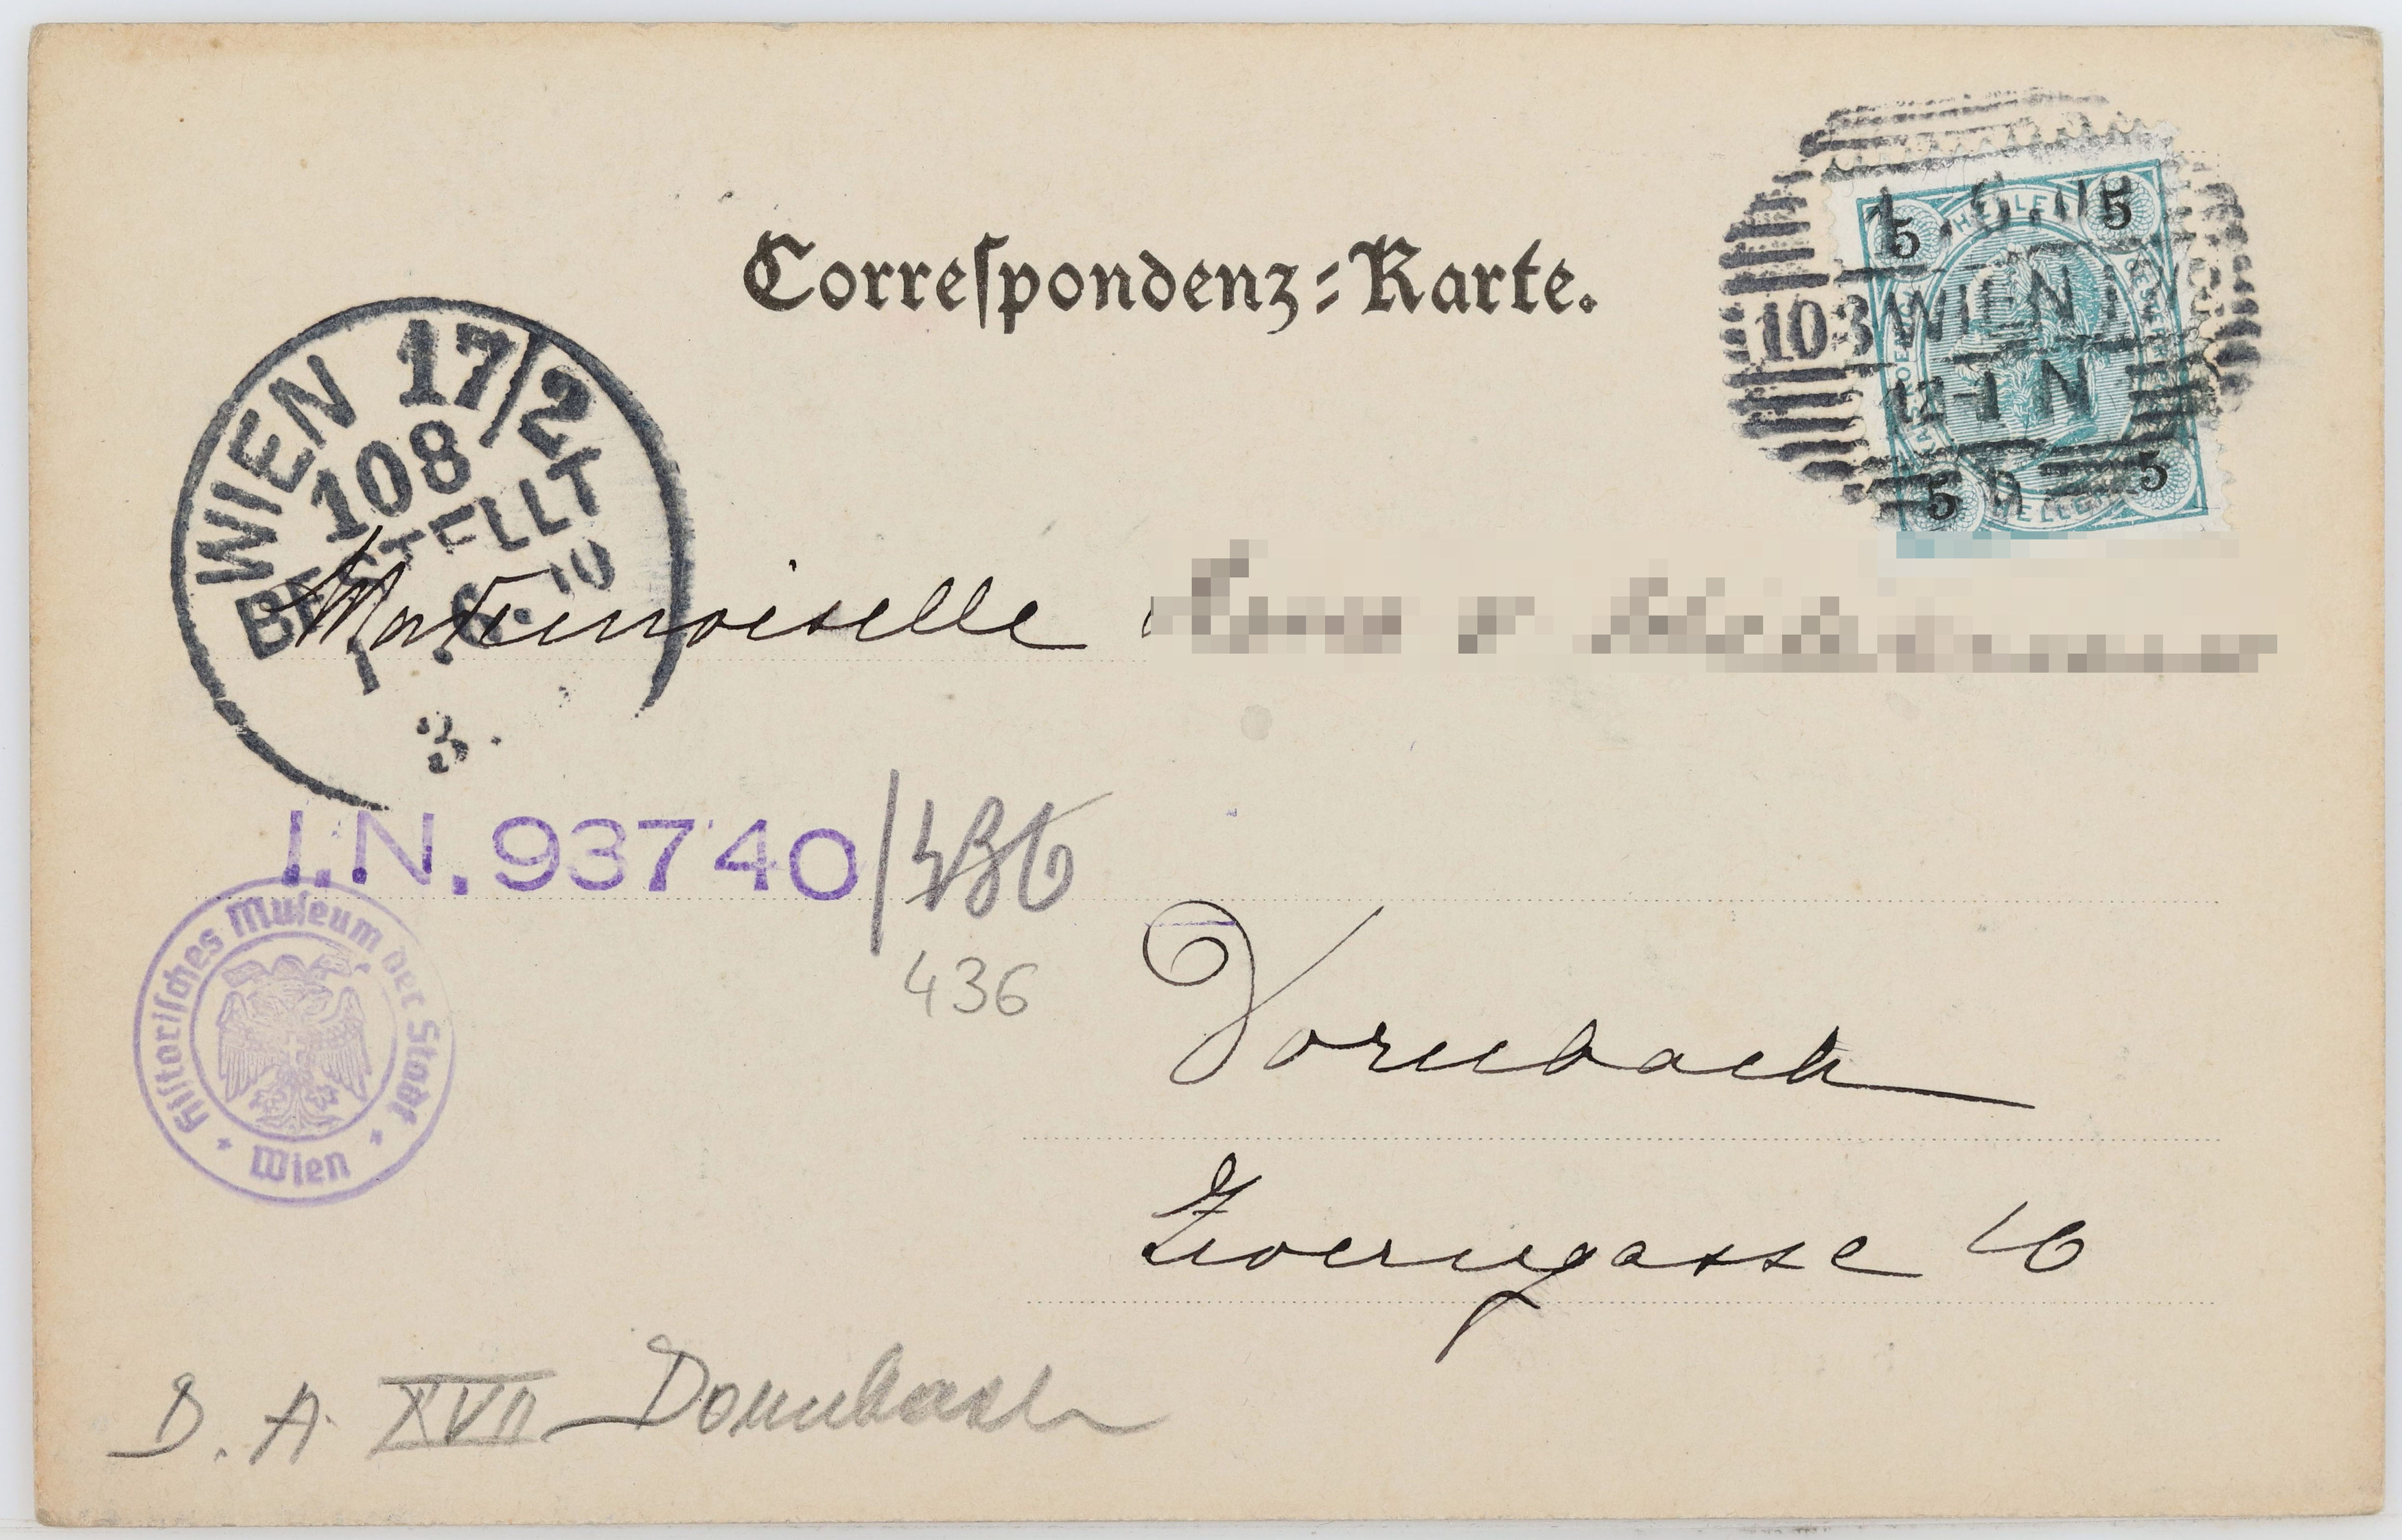 Correſpondenz-Karte.
5 5
HELLER
103 WIEN 1
12-1 N
5 5
HELLER
WIEN 17/2
108
BESTELLT
1. 6. 00
3.
Mademoiselle
I.N. 93740/436
436
Hiſtoriſches Muſeum der Stadt
Wien
Dornbach
Zwerngasse 10
B. A. XVII Dornbach